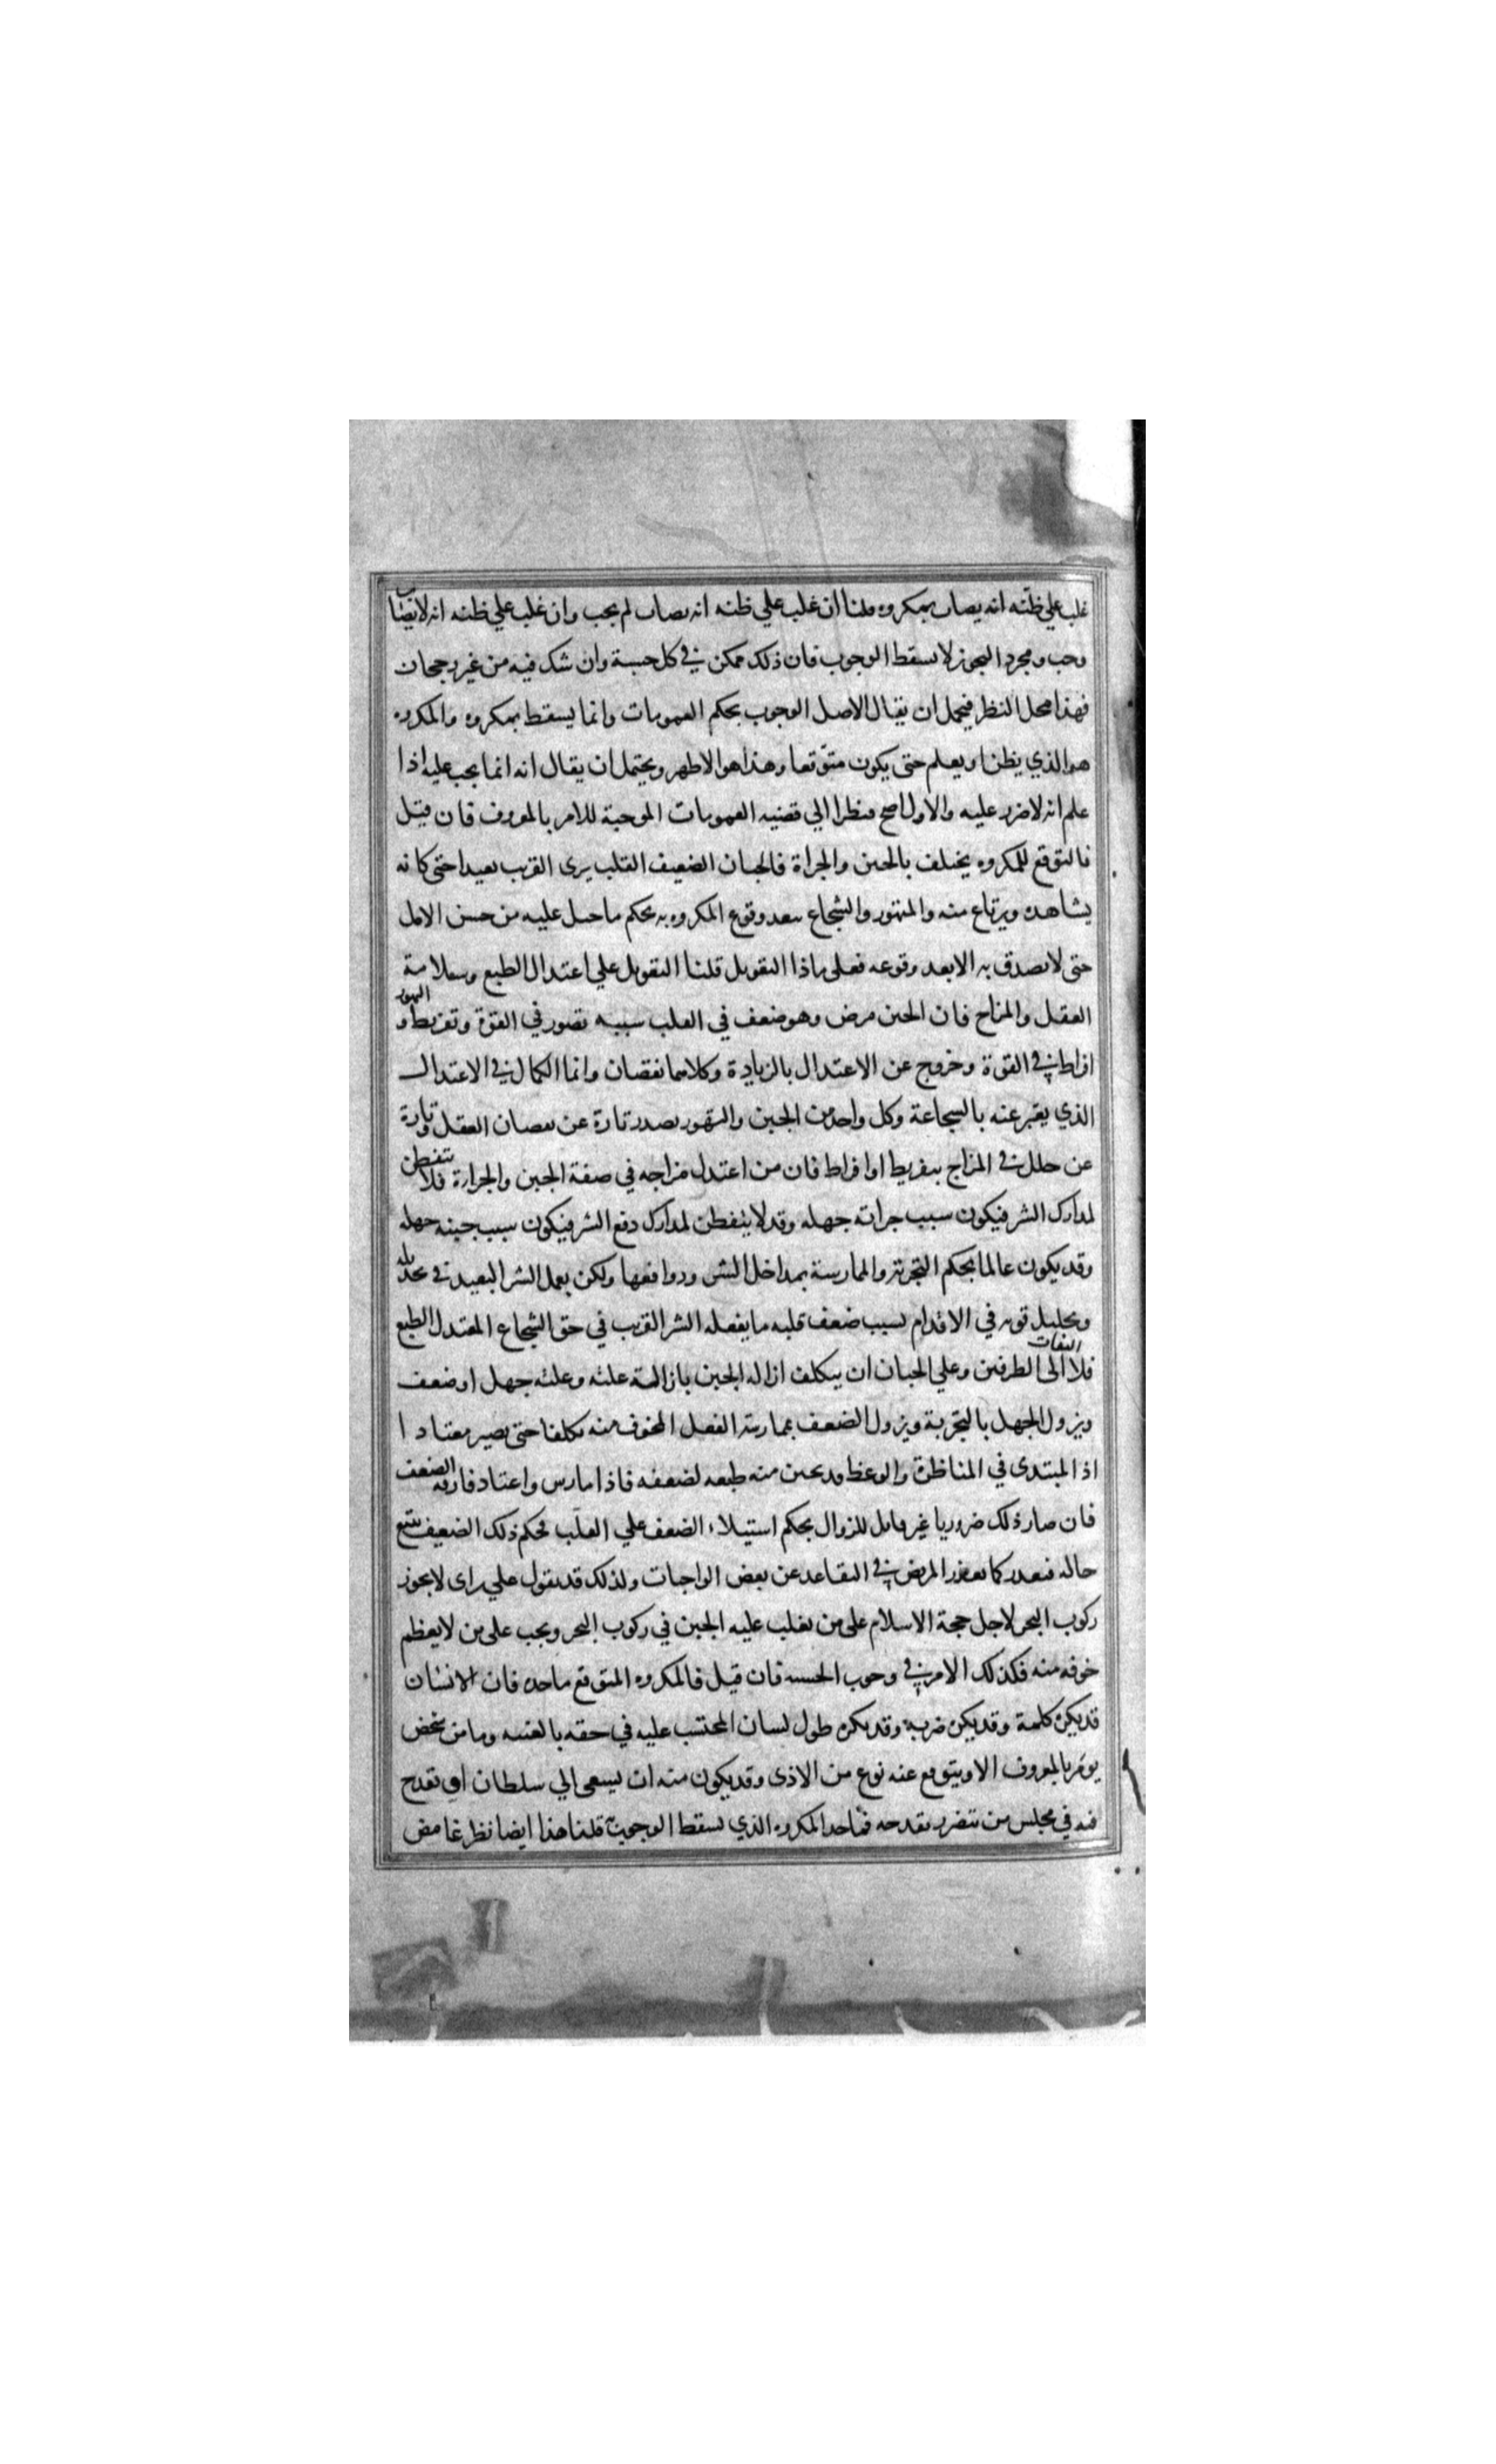 غلب علي ظنه انه يصاب بمكروه قلنا ان غلب علي ظنه انه يصاب لم يجب وان غلب علي ظنه انه لا يصاب
وجب ومجرد التجوز لا يسقط الوجوب فان ذلك ممكن في كل حسبة وان شك فيه من غير رجحان
فهذا محل النظر فيحمل ان يقال الاصل الوجوب بحكم العمومات وانما يسقط بمكروه والمكروه
هو الذي يظن او يعلم حتى يكون متوقعا وهذا هو الاظهر ويحتمل ان يقال انه انما يجب عليه اذا
علم انه لا ضرر عليه والاول اصح نظرا الي قضيه العمومات الموجبة للامر بالمعروف فان قيل
فالتوقع للمكروه يختلف بالجبن والجراة فالجبان الضعيف القلب يرى القرب بعيدا حتى كانه
يشاهده ويرتاع منه والمتهور والشجاع يبعد وقوع المكروه به بحكم ما جبل عليه من حسن الامل
حتى لا يصدق به الا بعد وقوعه فعلى ماذا التعويل قلنا التعويل علي اعتدال الطبع وسلامة
العقل والمزاج فان الجبن مرض وهو ضعف في القلب سببه قصور في القوة وتفريط والتهور
افراط في القوة وخروج عن الاعتدال بالزيادة وكلاهما نقصان وانما الكمال في الاعتدال
الذي يعبر عنه بالشجاعة وكل واحد من الجبن والتهور يصدر تارة عن نقصان العقل وتارة
عن خلل في المزاج بتفريط او افراط فان من اعتدل مزاجه في صفة الجبن والجراءة فلا يتفطن
لمدارك الشر فيكون سبب جراته جهله وقد لا يتفطن لمدارك دفع الشر فيكون سبب جبنه جهله
وقد يكون عالما بحكم التجربة والممارسة بمداخل الشر ودوافعها ولكن يعمل الشر البعيد في تخذيله
وتحليل قوته في الاقدام بسبب ضعف قلبه ما يفعله الشر القرب في حق الشجاع المعتدل الطبع
فلا التفات الى الطرفين وعلي الجبان ان يتكلف ازاله الجبن بازالة علته وعلته جهل او ضعف
ويزول الجهل بالتجربة ويزول الضعف بممارسة الفعل المخوف منه تكلفا حتى يصير معتادا
اذ المبتدى في المناظرة والوعظ قد يجبن منه طبعه لضعفه فاذا مارس واعتاد فارقه الضعف
فان صار ذلك ضروريا غير قابل للزوال بحكم استيلاء الضعف علي القلب فحكم ذلك الضعيف يتبع
حاله فيعذر كما يعذر المريض في التقاعد عن بعض الواجبات ولذلك قد يقول علي راى لا يجوز
ركوب البحر لاجل حجة الاسلام على من يغلب عليه الجبن في ركوب البحر ويجب على من لا يعظم
خوفه منه فكذلك الامر في وجوب الحسبه فان قيل فالمكروه المتوقع ما حده فان الانسان
قد يكره كلمة وقد يكره ضربة وقد يكره طول لسان المحتسب عليه في حقه بالغيبه وما من شخص
يومر بالمعروف الا ويتوقع عنه نوع من الاذى وقد يكون منه ان يسعى الي سلطان او يقدح
فيه في مجلس من يتضرر بقدحه فما حد المكروه الذي يسقط الوجوب قلنا هذا ايضا نظر غامض